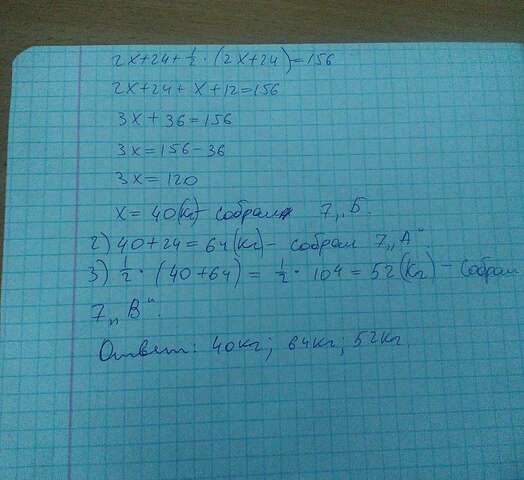 2x+24+½·(2x+24)=156
2x+24+x+12=156
3x+36=156
3x=156-36
3x=120
x=40(кг)- собрали 7„Б.
2) 40+24=64(кг)- собрал 7„А“.
3) ½·(40+64)=½·104=52(кг)- собрал
7„В“.
Ответ: 40кг; 64кг; 52кг.